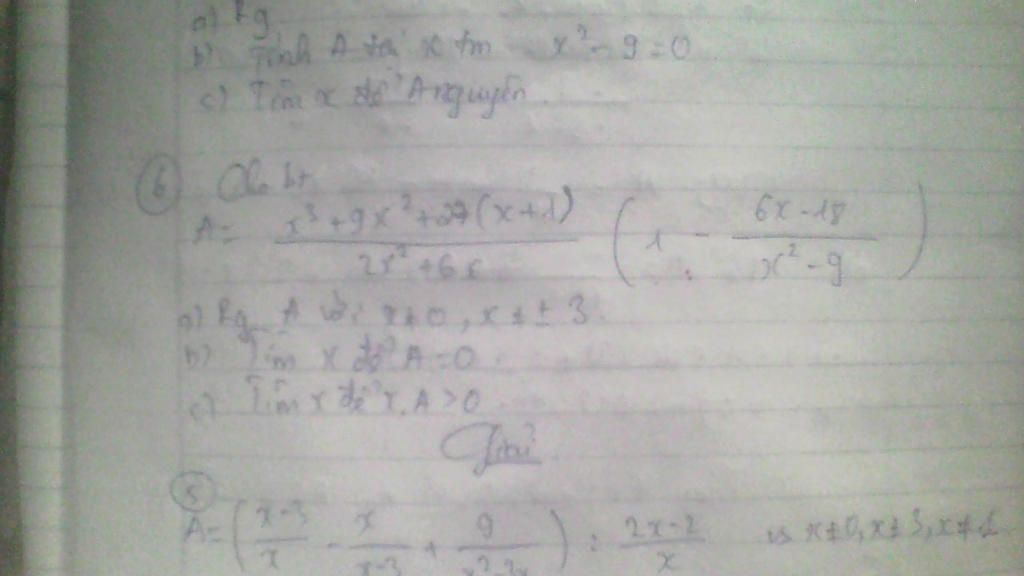 a) Rg
b) Tính A tại x tm x² - 9 = 0
c) Tìm x để A nguyên.
⑥ Cho bt
A = \frac{x³ + 9x² + 27(x+1)}{2x² + 6x} ( 1 - \frac{6x - 18}{x² - 9} )
a) Rg A với x ≠ 0, x ≠ ± 3.
b) Tìm x để A = 0
c) Tìm x để x.A > 0
Giải
⑤
A = ( \frac{x-3}{x} - \frac{x}{x-3} + \frac{9}{x²-3x} ) : \frac{2x-2}{x} x ≠ 0, x ≠ 3, x ≠ 1